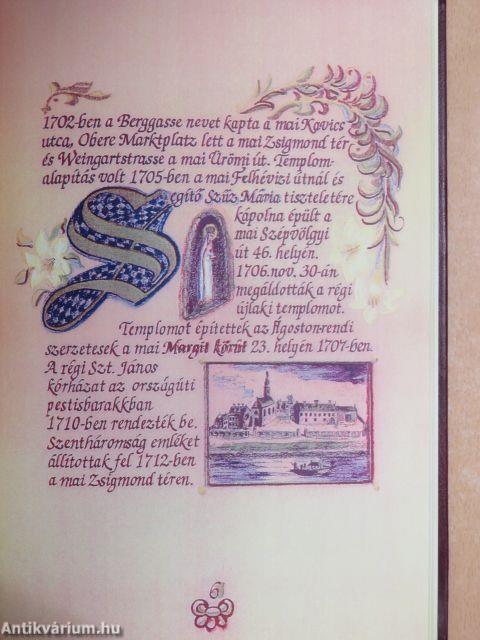 1702-ben a Berggasse nevet kapta a mai Kavics
utca, Obere Marktplatz lett a mai Zsigmond tér
és Weingartstrasse a mai Ürömi út. Templom-
alapítás volt 1705-ben a mai Felhévizi útnál és
Segítő Szűz Mária tiszteletére
kápolna épült a
mai Szépvölgyi
út 46. helyén.
1706. nov. 30-án
megáldották a régi
újlaki templomot.
Templomot építettek az Ágostonrendi
szerzetesek a mai Margit körút 23. helyén 1707-ben.
A régi Szt. János
kórházat az országúti
pestisbarakkban
1710-ben rendezték be.
Szentháromság emléket
állítottak fel 1712-ben
a mai Zsigmond téren.
6
Antikvárium.hu